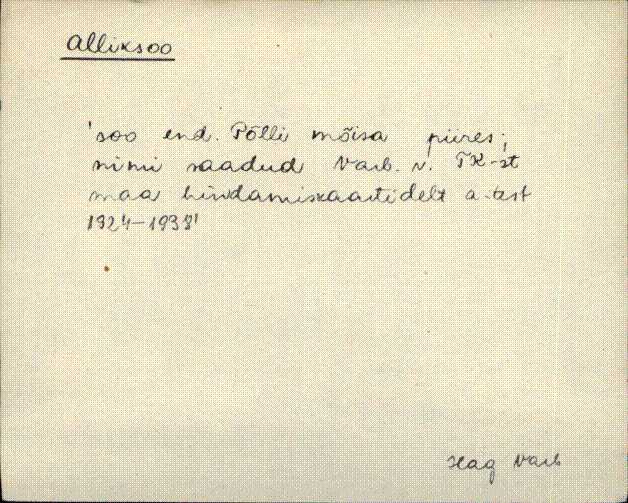 Alliksoo
'soo end. Põlli mõisa piires;
nimi saadud Varb. v. TK-st
maa hindamiskaartidelt a-test
1924-1938'
Hag Varb